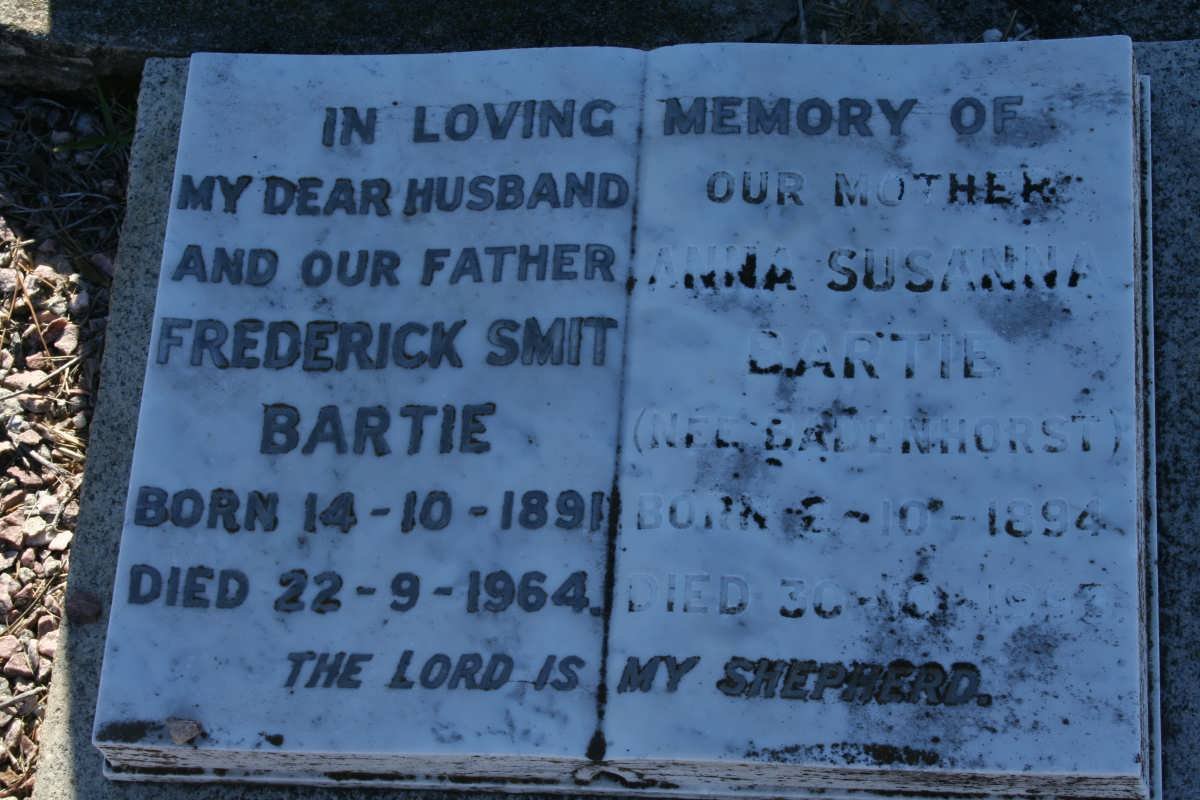 IN LOVING MEMORY OF
MY DEAR HUSBAND
AND OUR FATHER
FREDERICK SMIT
BARTIE
BORN 14-10-1891
DIED 22-9-1964.
OUR MOTHER
ANNA SUSANNA
BARTIE
(NEE BADENHORST)
BORN -10-1894
DIED 30-10-
THE LORD IS MY SHEPHERD.